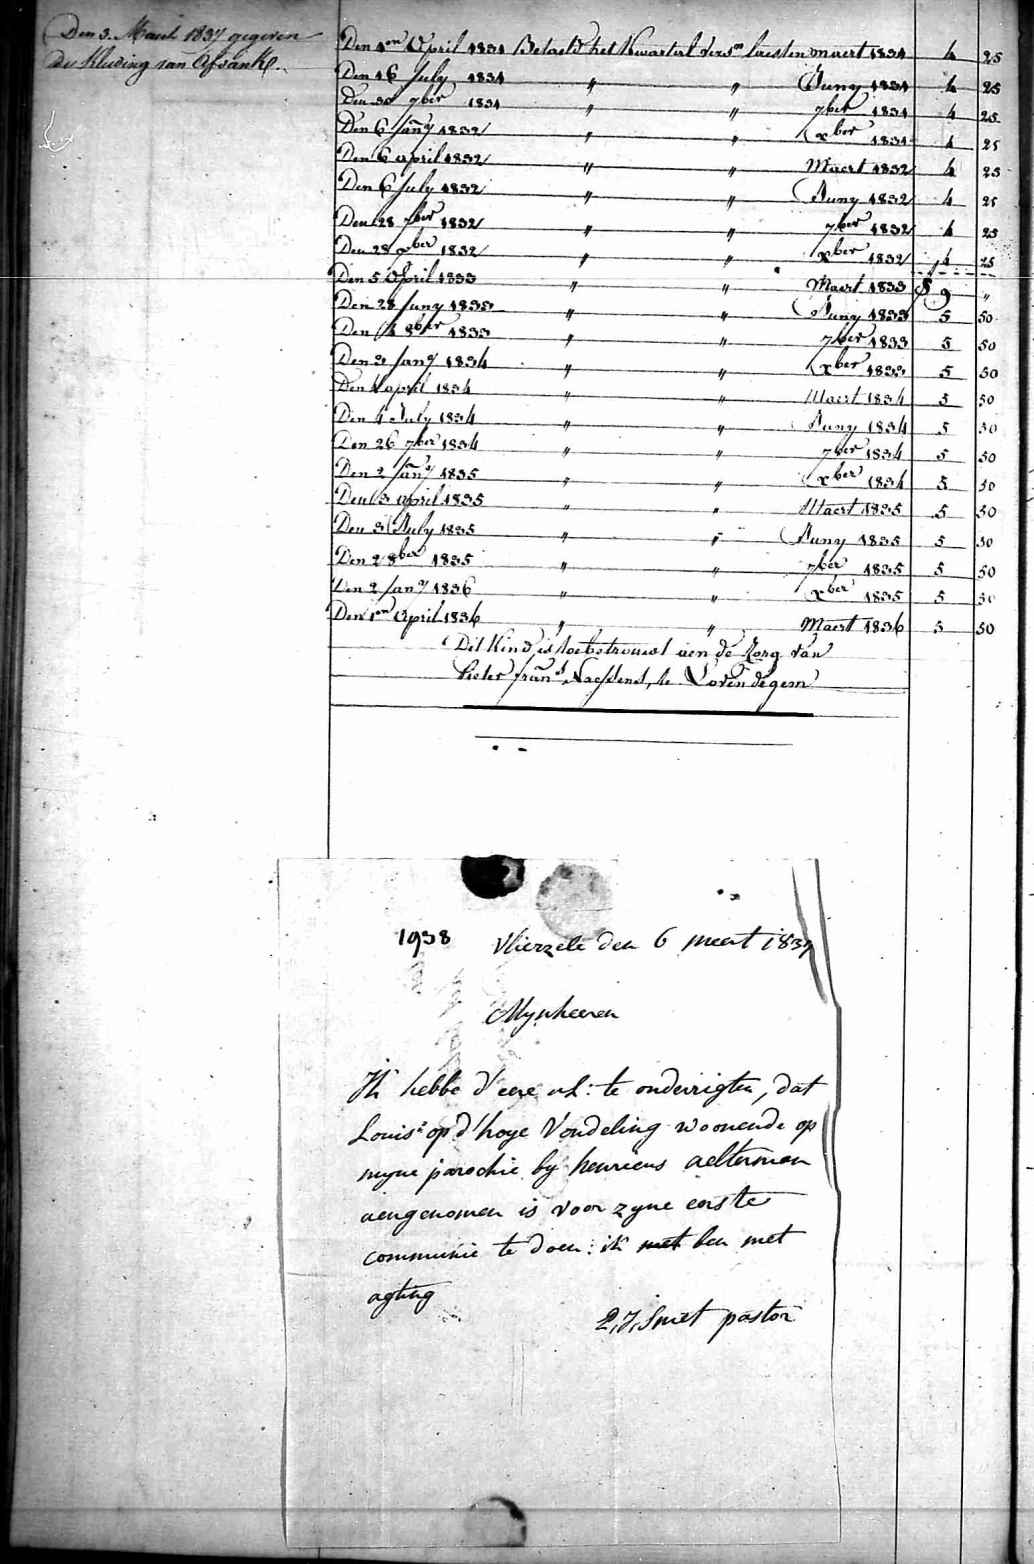 Den 3. Maert 1837 gegeven
de kleding van
Den 1en April 1831 Betaeld het Kwartael vers.n laesten maert 1831 4 25
Den 16 July 1831 " " Juny 1831 4 25
Den 30 7ber 1831 " " 7ber 1831 4 25
Den 6 Jany 1832 " " xber 1831 4 25
Den 6 april 1832 " " Maert 1832 4 25
Den 6 July 1832 " " Juny 1832 4 25
Den 28 7ber 1832 " " 7ber 1832 4 25
Den 28 xber 1832 " " xber 1832 4 25
Den 5 April 1833 " " Maert 1833 9 "
Den 28 Juny 1833 " " Juny 1833 5 50
Den 4 8ber 1833 " " 7ber 1833 5 50
Den 3 Jany 1834 " " xber 1833 5 50
Den 4 april 1834 " " Maert 1834 5 50
Den 4 July 1834 " " Juny 1834 5 50
Den 26 7ber 1834 " " 7ber 1834 5 50
Den 2 Jany 1835 " " xber 1834 5 50
Den 3 april 1835 " " Maert 1835 5 50
Den 3 July 1835 " " Juny 1835 5 50
Den 2 8ber 1835 " " 7ber 1835 5 50
Den 2 Jany 1836 " " xber 1835 5 50
Den 1en April 1836 " " Maert 1836 5 50
Dit Kind is toebetrouwt aen de Zorg van
Pieter frans Naessens, te Lovendegem
1938 Vlierzele den 6 meert 1837
Mynheeren
Ik hebbe d'eere ul: te onderrigten, dat
Louis op d'hoye Vondeling woonende op
myne parochie by henricus aelterman
aengenomen is voor zyne eerste
communie te doen: ik met ben met
agting
P, J, Smet pastor